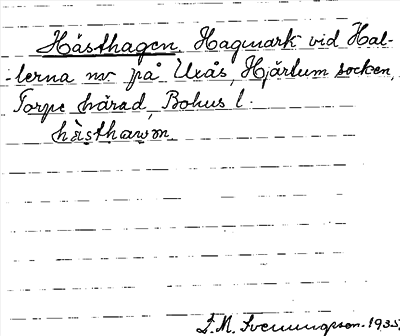 Hästhagen, Hagmark vid Hal-
-lerna nv på Uxås, Hjärtum socken,
Torpe härad, Bohus l.
hàsthawən
S. M. Svenungsson. 1935.